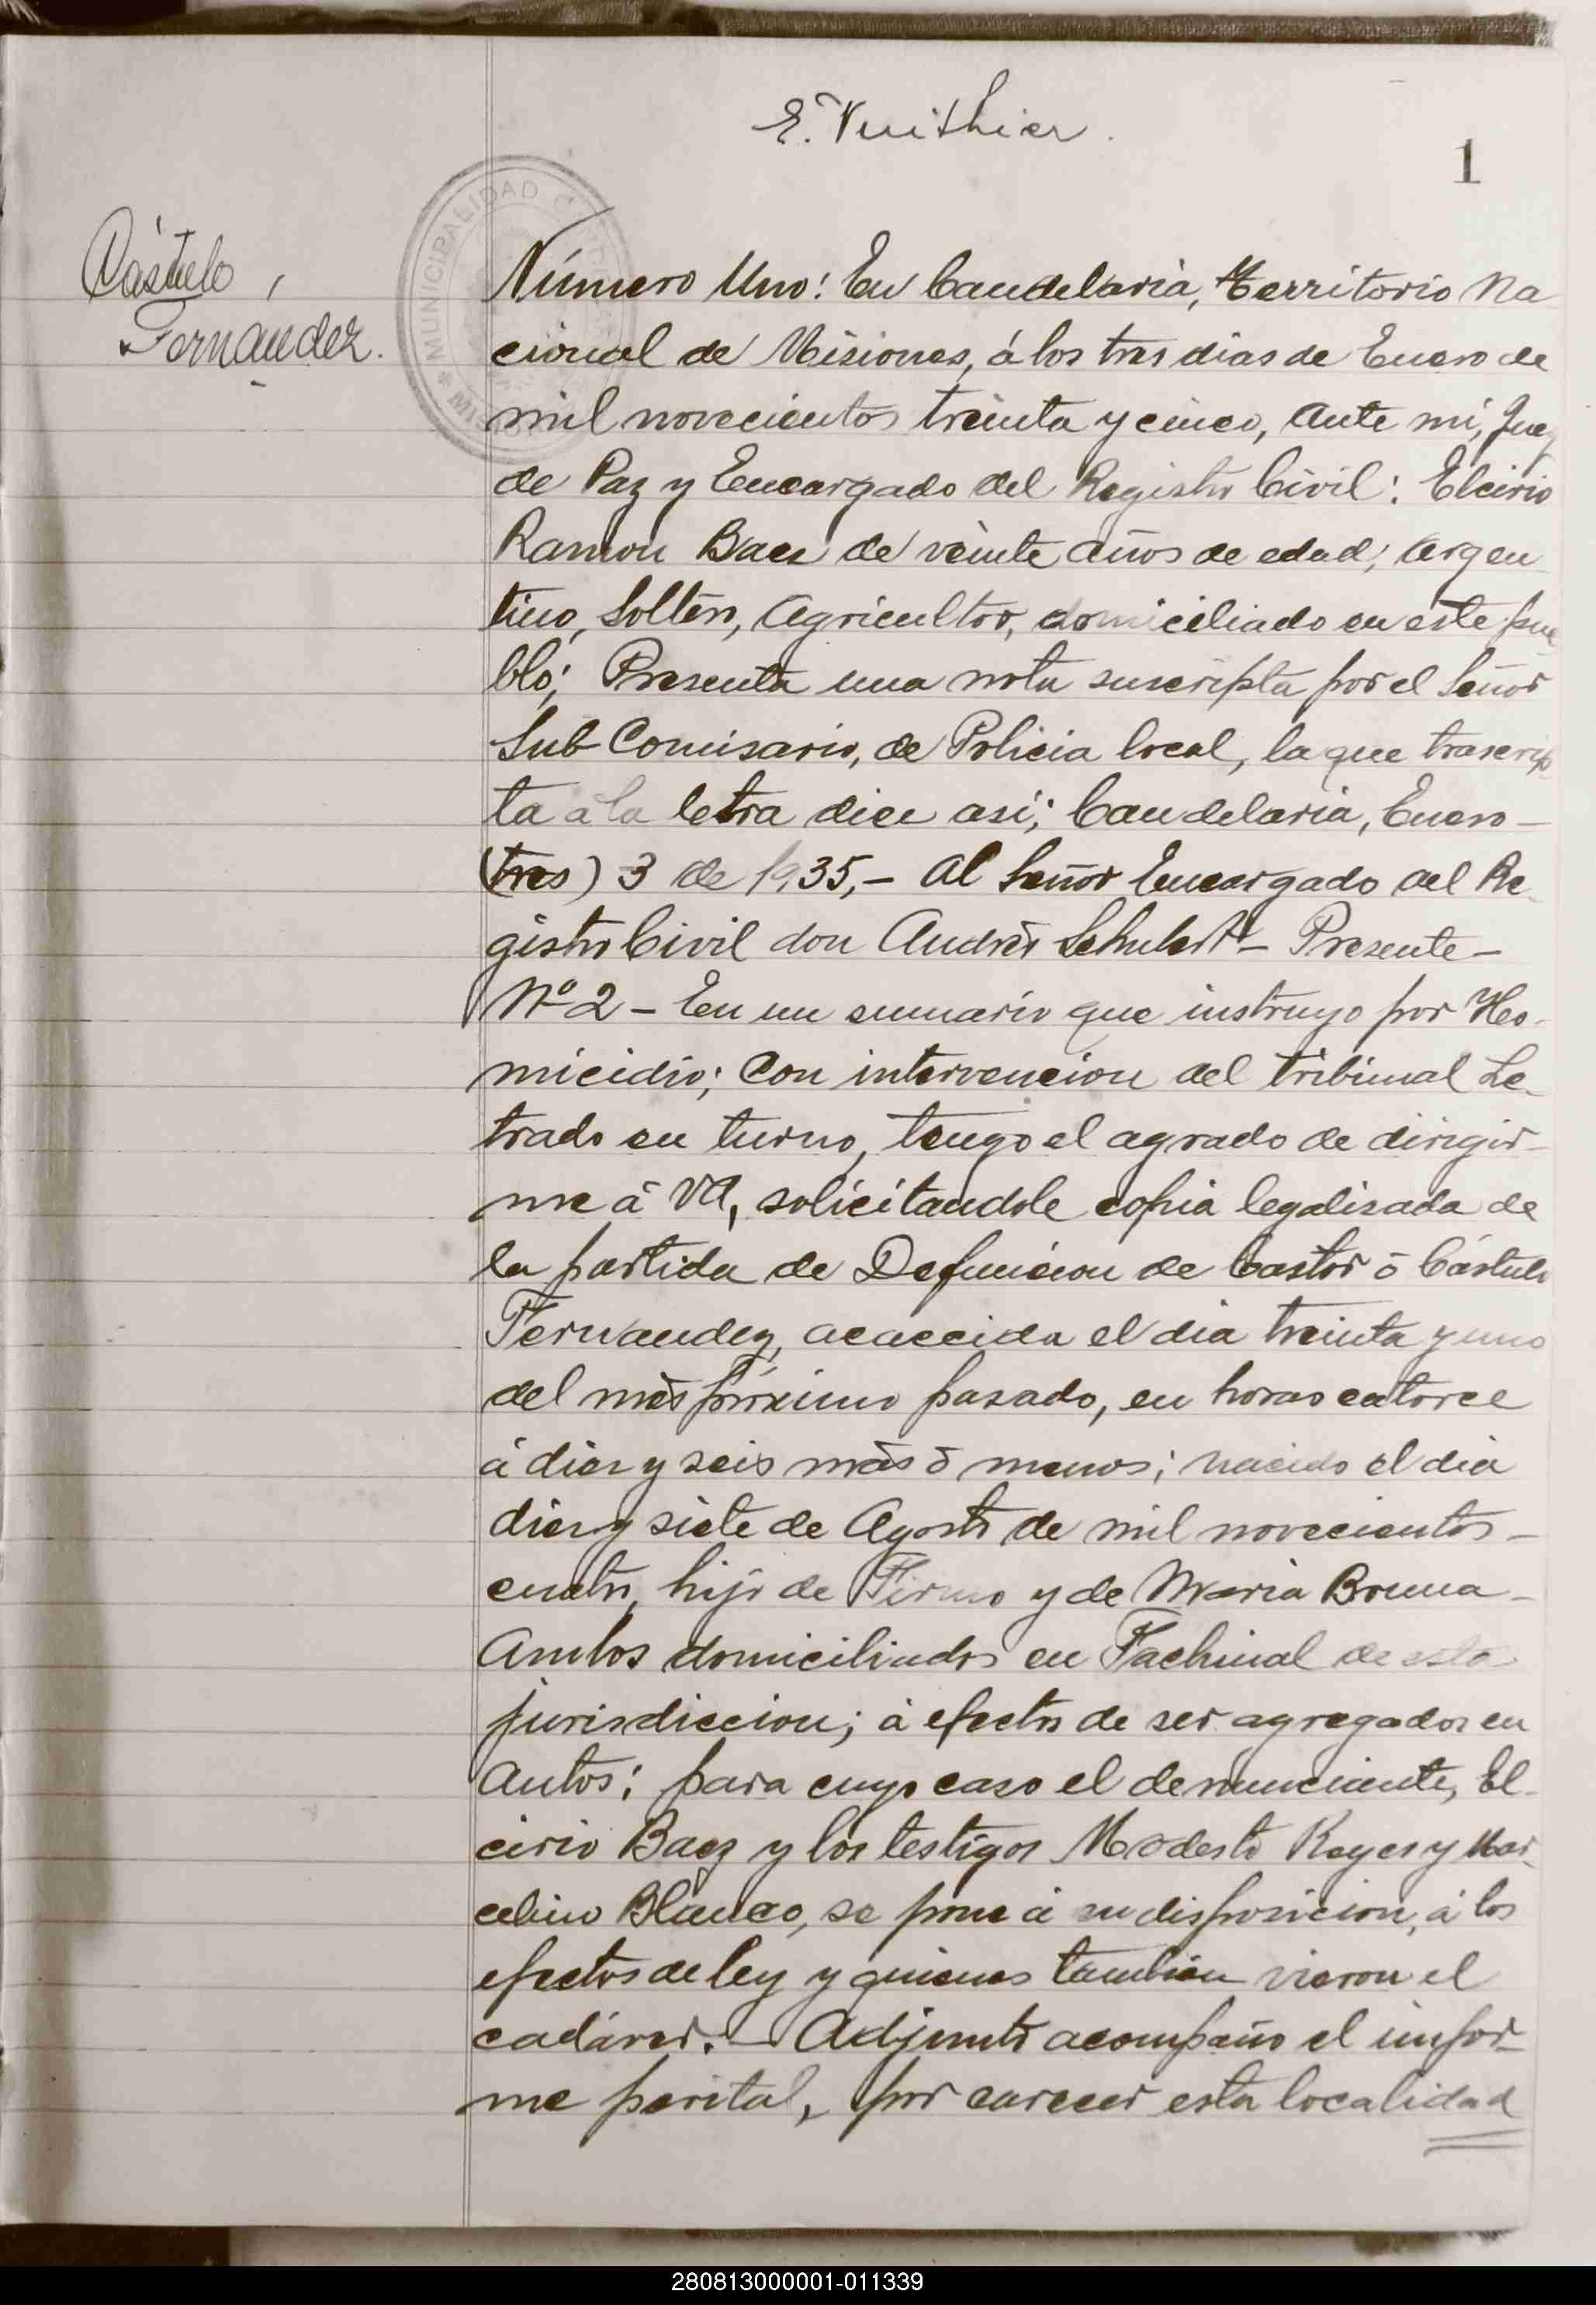 E. Vuithier.
1
MUNICIPALIDAD
Cástulo
Fernandez.
Número Uno: En Candelaria, Territorio Na
cional de Misiones, á los tres dias de Enero de
mil novecientos treinta y cinco, Ante mi, Juez
de Paz y Encargado del Registro Civil: Elcirio
Ramon Baez de veinte años de edad; Argen
tino, Soltero, Agricultor, domiciliado en este pue
blo; Presenta una nota suscripta por el Señor
Sub-Comisario, de Policia local, la que trascrip
ta a la letra dice asi; Candelaria, Enero —
(tres) 3 de 1935,— Al Señor Encargado del Re
gistro Civil don Andrés Schubert — Presente —
Nº 2 — En un sumario que instruyo por Heo-
micidio; Con intervencion del tribunal Le-
trado en turno, tengo el agrado de dirigir-
me á Vd, solicitandole copia legalizada de
la partida de Defuncion de Castor ó Cástulo
Fernandez, acaecida el dia treinta y uno
del més próximo pasado, en horas catorce
á diez y seis más ó menos; nacido el dia
diez y siete de Agosto de mil novecientos —
cuatro, hijo de Firmo y de Maria Bruna —
Ambos domiciliados en Fachinal de esta
jurisdiccion; á efectos de ser agregados en
Autos; para cuyo caso el denunciante, El-
cirio Baez y los testigos Modesto Reyes y Mar-
celino Blanco, se pone á su disposicion, á los
efectos de ley y quienes tambien vieron el
cadáver. — Adjunto acompaño el infor-
me perital, por carecer esta localidad
280813000001-011339